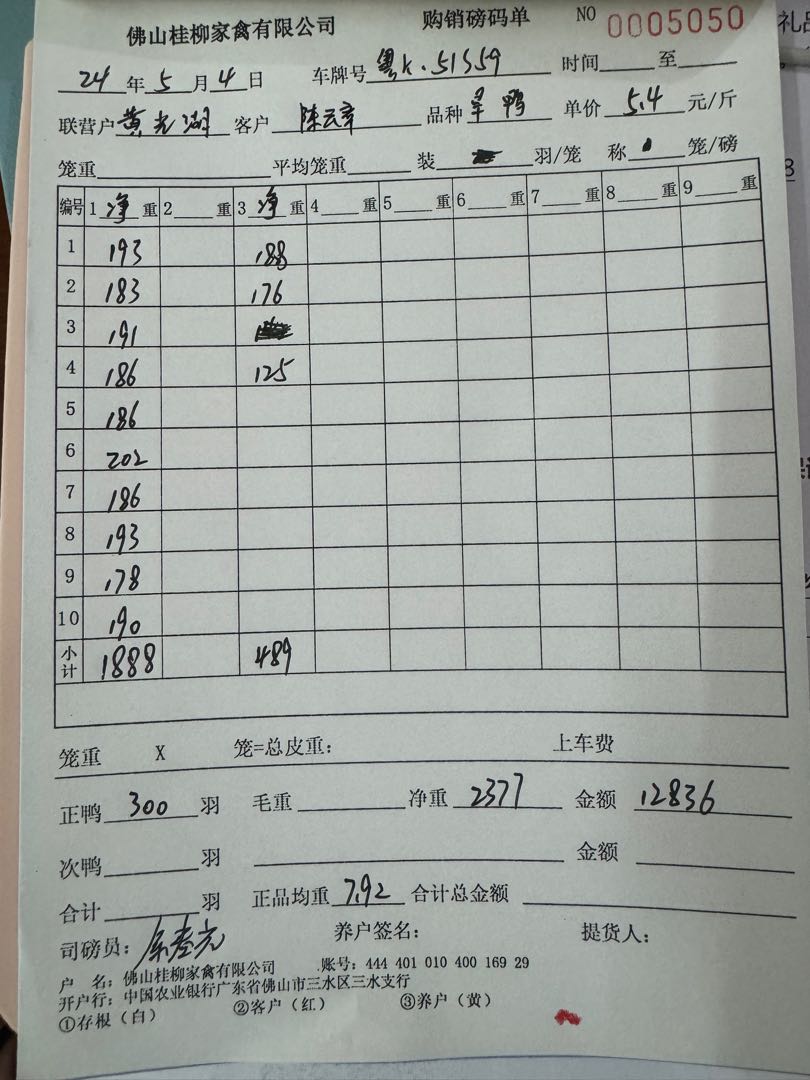 佛山桂柳家禽有限公司 购销磅码单 NO 0005050
24 年 5 月 4 日 车牌号 粤K·51S59 时间 至
联营户 黄光湖 客户 品种 鸭 单价 5.4 元/斤
笼重 平均笼重 装 羽/笼 称 笼/磅
编号 1 净 重 2 重 3 净 重 4 重 5 重 6 重 7 重 8 重 9 重
1 193 188
2 183 176
3 191
4 186 125
5 186
6 202
7 186
8 193
9 178
10 190
小计 1888 489
笼重 X 笼=总皮重: 上车费
正鸭 300 羽 毛重 净重 2377 金额 12836
次鸭 羽 金额
合计 羽 正品均重 7.92 合计总金额
司磅员: 养户签名: 提货人:
户 名: 佛山桂柳家禽有限公司 账号: 444 401 010 400 169 29
开户行: 中国农业银行广东省佛山市三水区三水支行
①存根（白） ②客户（红） ③养户（黄）